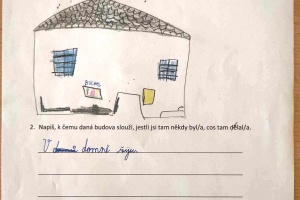 2. Napiš, k čemu daná budova slouží, jestli jsi tam někdy byl/a, cos tam dělal/a.
V domně žiju.